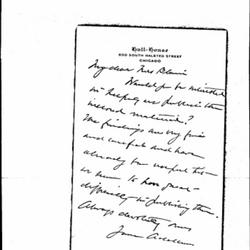 Hull-House
800 SOUTH HALSTED STREET
CHICAGO
My dear Mrs Blaine
Would you be interested
in helping us publish these
findings are very fine
and careful and have
already
us here to have great
difficulty in publishing them.
Always devotedly yours
Jane Addams